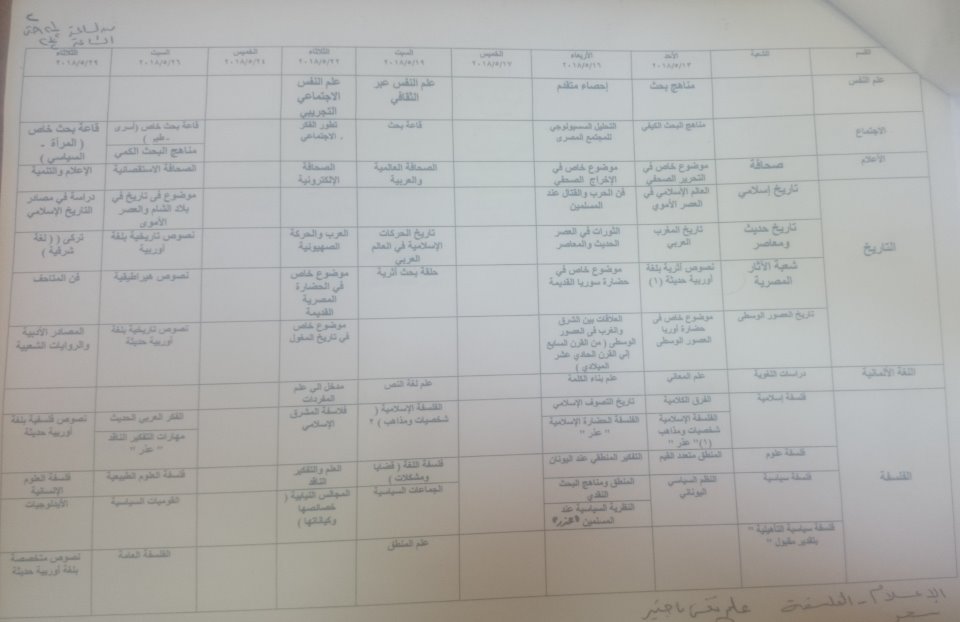 القسم الشعبة الأحد الأربعاء الخميس السبت الثلاثاء الخميس السبت الثلاثاء
٢٠١٨/٥/١٣ ٢٠١٨/٥/١٦ ٢٠١٨/٥/١٧ ٢٠١٨/٥/١٩ ٢٠١٨/٥/٢٢ ٢٠١٨/٥/٢٤ ٢٠١٨/٥/٢٦ ٢٠١٨/٥/٢٩
علم النفس مناهج بحث إحصاء متقدم علم النفس عبر علم النفس
الثقافي الاجتماعي
التجريبي
الاجتماع مناهج البحث الكيفي التحليل السسيولوجي قاعة بحث تطور الفكر قاعة بحث خاص (أسرى قاعة بحث خاص
للمجتمع المصرى الاجتماعى - طبى ) ( المرأة -
مناهج البحث الكمي السياسي )
الأعلام صحافة موضوع خاص في موضوع خاص في الصحافة العالمية الصحافة الصحافة الاستقصائية الإعلام والتنمية
التحرير الصحفي الإخراج الصحفي والعربية الإلكترونية
التاريخ تاريخ إسلامي العالم الأسلامي في فن الحرب والقتال عند موضوع فى تاريخ في دراسة في مصادر
العصر الأموي المسلمين بلاد الشام والعصر التاريخ الإسلامي
الأموى
تاريخ حديث تاريخ المغرب الثورات في العصر تاريخ الحركات العرب والحركة نصوص تاريخية بلغة تركى ( ( لغة
ومعاصر العربي الحديث والمعاصر الإسلامية في العالم الصهيونية أوربية شرقية )
العربي
شعبة الآثار نصوص أثرية بلغة موضوع خاص في حلقة بحث أثرية موضوع خاص نصوص هيراطيقية فن المتاحف
المصرية أوربية حديثة (١) حضارة سوريا القديمة في الحضارة
المصرية
القديمة
تاريخ العصور الوسطى موضوع خاص فى العلاقات بين الشرق موضوع خاص نصوص تاريخية بلغة المصادر الأدبية
حضارة أوربا والغرب فى العصور في تاريخ المغول أوربية حديثة والروايات الشعبية
العصور الوسطى الوسطى ( من القرن السابع
إلي القرن الحادي عشر
الميلادي )
اللغة الألمانية دراسات اللغوية علم المعاني علم بناء الكلمة علم لغة النص مدخل الى علم
المفردات
الفلسفة فلسفة إسلامية الفرق الكلامية تاريخ التصوف الإسلامي الفلسفة الإسلامية ( فلاسفة المشرق الفكر العربي الحديث نصوص فلسفية بلغة
الفلسفة الإسلامية الفلسفة الحضارة الإسلامية شخصيات ومذاهب ) ٢ الإسلامي مهارات التفكير الناقد أوربية حديثة
شخصيات ومذاهب " عذر " " عذر "
(١)" عذر "
فلسفة علوم المنطق متعدد القيم التفكير المنطقي عند اليونان فلسفة اللغة ( قضايا العلم والتفكير فلسفة العلوم الطبيعية فلسفة العلوم
ومشكلات ) الناقد الإنسانية
فلسفة سياسية النظم السياسي المنطق ومناهج البحث الجماعات السياسية المجالس النيابية ( القوميات السياسية الأيدلوجيات
اليوناني النقدي خصائصها
النظرية السياسية عند وكياناتها )
المسلمين
فلسفة سياسية التأهيلية " علم المنطق الفلسفة العامة نصوص متخصصة
بتقدير مقبول " بلغة أوربية حديثة
الإعلام - الفلسفة علم نفس